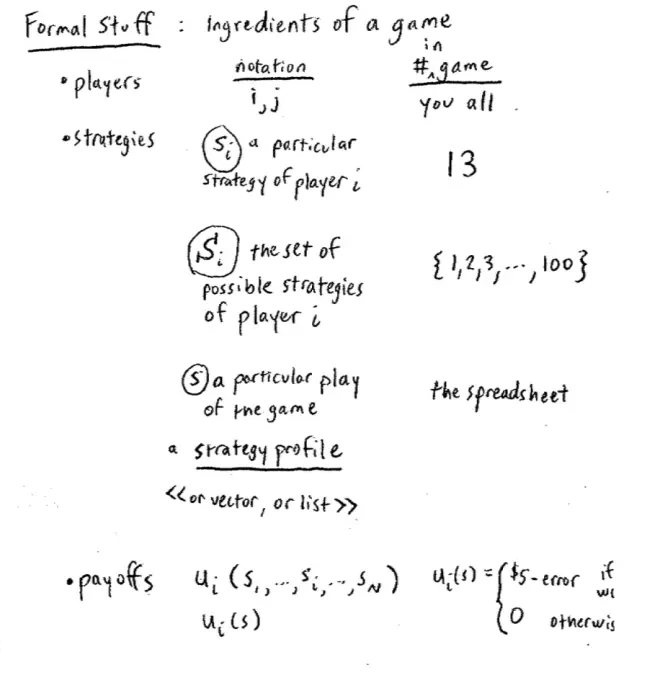 Formal Stuff : Ingredients of a game
notation
# in game
• players
i, j
you all
• strategies
sᵢ a particular
strategy of player i
13
Sᵢ the set of
possible strategies
of player i
{1,2,3,...,100}
s a particular play
of the game
the spreadsheet
a strategy profile
<<or vector, or list>>
• payoffs uᵢ(s₁,...,sᵢ,...,s_N) uᵢ(s) = { $5-error if
uᵢ(s)
0 otherwis